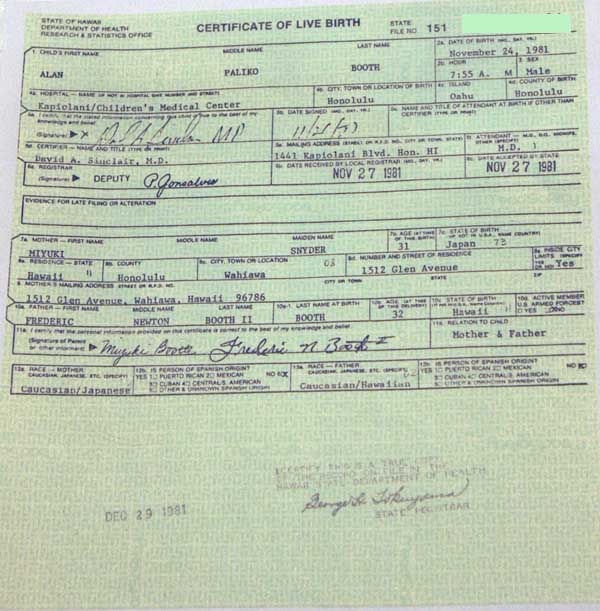 STATE OF HAWAII CERTIFICATE OF LIVE BIRTH STATE
DEPARTMENT OF HEALTH FILE NO. 151
RESEARCH & STATISTICS OFFICE
1. CHILD'S FIRST NAME MIDDLE NAME LAST NAME 2a. DATE OF BIRTH (MO., DAY, YR.)
ALAN PALIKO BOOTH November 24, 1981
2b. HOUR 3. SEX
7:55 A. M Male
4a. HOSPITAL — NAME (IF NOT IN HOSPITAL GIVE NUMBER AND STREET) 4b. CITY, TOWN OR LOCATION OF BIRTH 4c. ISLAND 4d. COUNTY OF BIRTH
Kapiolani/Children's Medical Center Honolulu Oahu Honolulu
5a. I certify that the stated information concerning this child is true to the best of my knowledge and belief. 5b. DATE SIGNED (MO., DAY, YR.) 5c. NAME AND TITLE OF ATTENDANT AT BIRTH IF OTHER THAN CERTIFIER (TYPE OR PRINT)
(Signature) X MD
5d. CERTIFIER — NAME AND TITLE (TYPE OR PRINT) 5e. MAILING ADDRESS (STREET OR R.F.D. NO., CITY OR TOWN, STATE) 5f. ATTENDANT — M.D., D.O., MIDWIFE, OTHER (SPECIFY)
David A. Sinclair, M.D. 1441 Kapiolani Blvd. Hon. HI M.D.
6a. REGISTRAR 6b. DATE RECEIVED BY LOCAL REGISTRAR (MO., DAY, YR.) 6c. DATE ACCEPTED BY STATE
(Signature) DEPUTY P. Gonsalves NOV 27 1981 NOV 27 1981
EVIDENCE FOR LATE FILING OR ALTERATION
7a. MOTHER — FIRST NAME MIDDLE NAME MAIDEN NAME 7b. AGE (AT TIME OF THIS BIRTH) 7c. STATE OF BIRTH (IF NOT IN U.S.A., NAME COUNTRY)
MIYUKI SNYDER 31 Japan 73
8a. RESIDENCE — STATE 8b. COUNTY 8c. CITY, TOWN OR LOCATION 8d. NUMBER AND STREET OF RESIDENCE 8e. INSIDE CITY LIMITS (SPECIFY YES OR NO)
Hawaii 11 Honolulu Wahiawa 03 1512 Glen Avenue Yes
9. MOTHER'S MAILING ADDRESS STREET OR R.F.D. NO. CITY OR TOWN STATE ZIP
1512 Glen Avenue, Wahiawa, Hawaii 96786
10a. FATHER — FIRST NAME MIDDLE NAME LAST NAME 10a-1. LAST NAME AT BIRTH 10b. AGE (AT TIME OF THIS BIRTH) 10c. STATE OF BIRTH (IF NOT IN U.S.A., NAME COUNTRY) 10d. ACTIVE MEMBER U.S. ARMED FORCES?
FREDERIC NEWTON BOOTH II BOOTH 32 Hawaii 11 YES NO
11a. I certify that the personal information provided on this certificate is correct to the best of my knowledge and belief. 11b. RELATION TO CHILD
(Signature of Parent or other informant) Miyuki Booth Frederic N Booth II Mother & Father
12a. RACE — MOTHER CAUCASIAN, JAPANESE, ETC. (SPECIFY) 12b. IS PERSON OF SPANISH ORIGIN? 13a. RACE — FATHER CAUCASIAN, JAPANESE, ETC. (SPECIFY) 13b. IS PERSON OF SPANISH ORIGIN?
YES 1 PUERTO RICAN 2 MEXICAN NO YES 1 PUERTO RICAN 2 MEXICAN NO
3 CUBAN 4 CENTRAL/S. AMERICAN 3 CUBAN 4 CENTRAL/S. AMERICAN
Caucasian/Japanese 5 OTHER & UNKNOWN SPANISH ORIGIN Caucasian/Hawaiian 5 OTHER & UNKNOWN SPANISH ORIGIN
I CERTIFY THIS IS A TRUE COPY
OF THE RECORD ON FILE IN THE
HAWAII STATE DEPARTMENT OF HEALTH
DEC 29 1981
STATE REGISTRAR